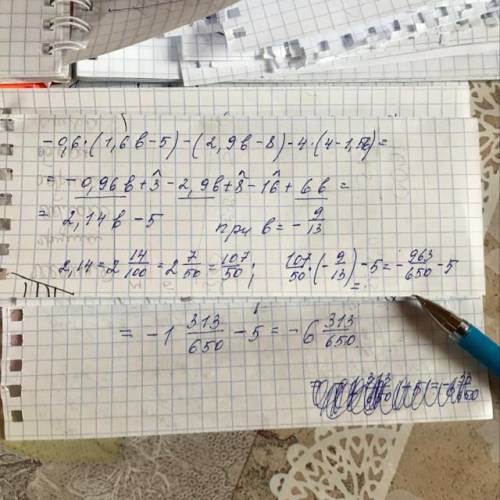 -0,6·(1,6в-5)-(2,9в-8)-4·(4-1,5в)=
= -0,96в+3-2,9в+8-16+6в=
= 2,14в-5 при в = -9/13
2,14=2 14/100=2 7/50=107/50; 107/50·(-9/13)-5=-963/650-5
= -1 313/650 - 5 = -6 313/650